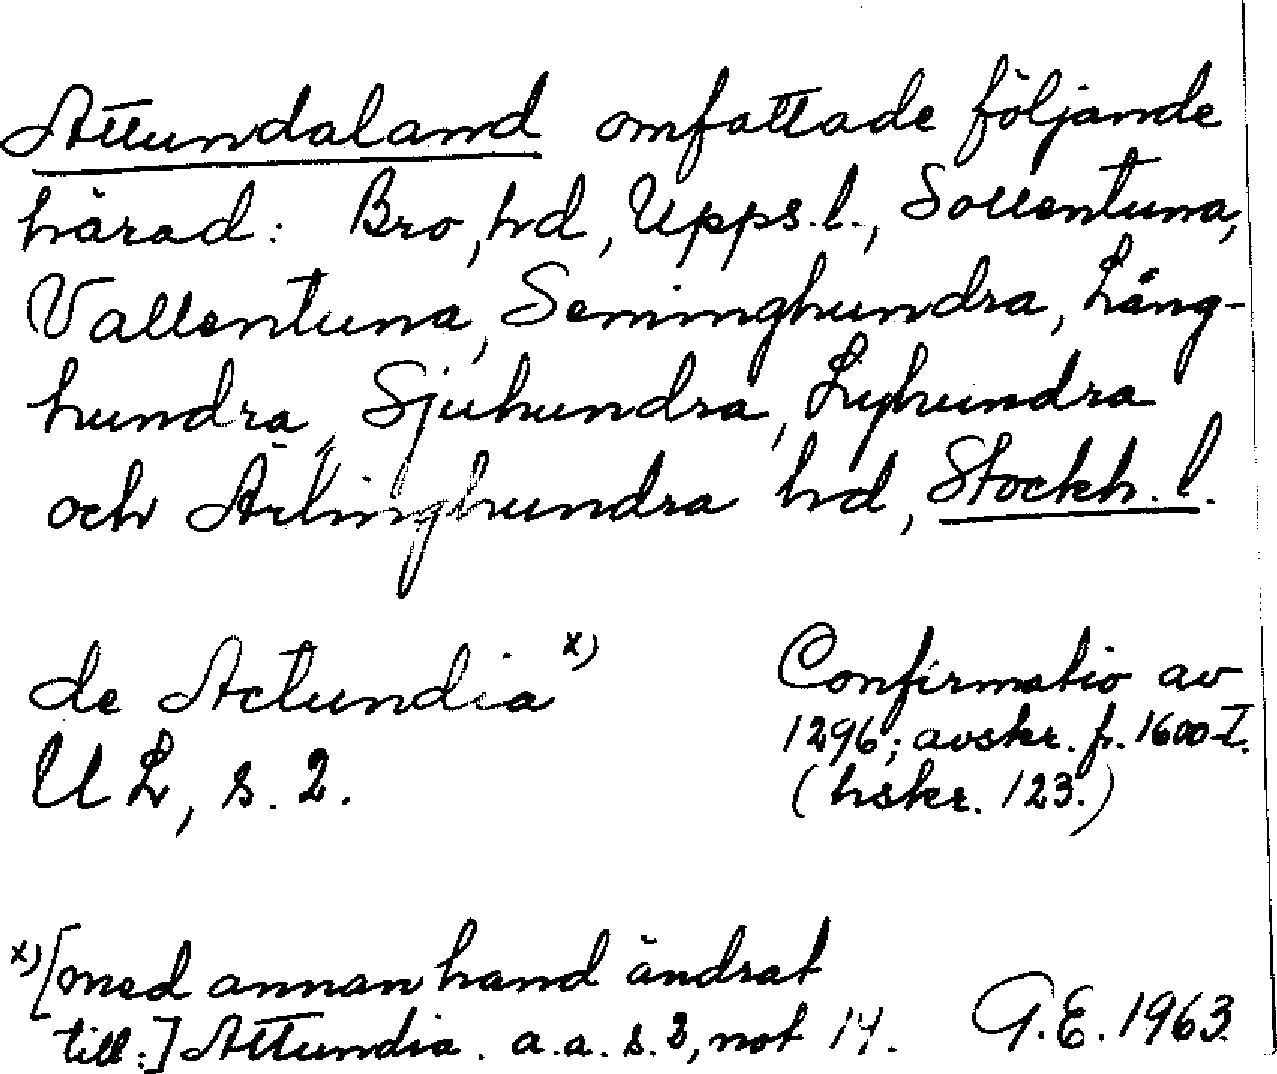 Attundaland omfattade följande
härad: Bro, hd, Upps. l., Sollentuna,
Vallentuna, Seminghundra, Lång-
hundra, Sjuhundra, Lyhundra
och Ärlinghundra hd, Stockh. l.
de Actundia x) Confirmatio av
1296; avskr. fr. 1600-t.
UL, s. 2. (hskr. 123.)
x) [med annan hand ändrat
till:] Attundia. a.a. s. 2, not 14. G.E. 1963